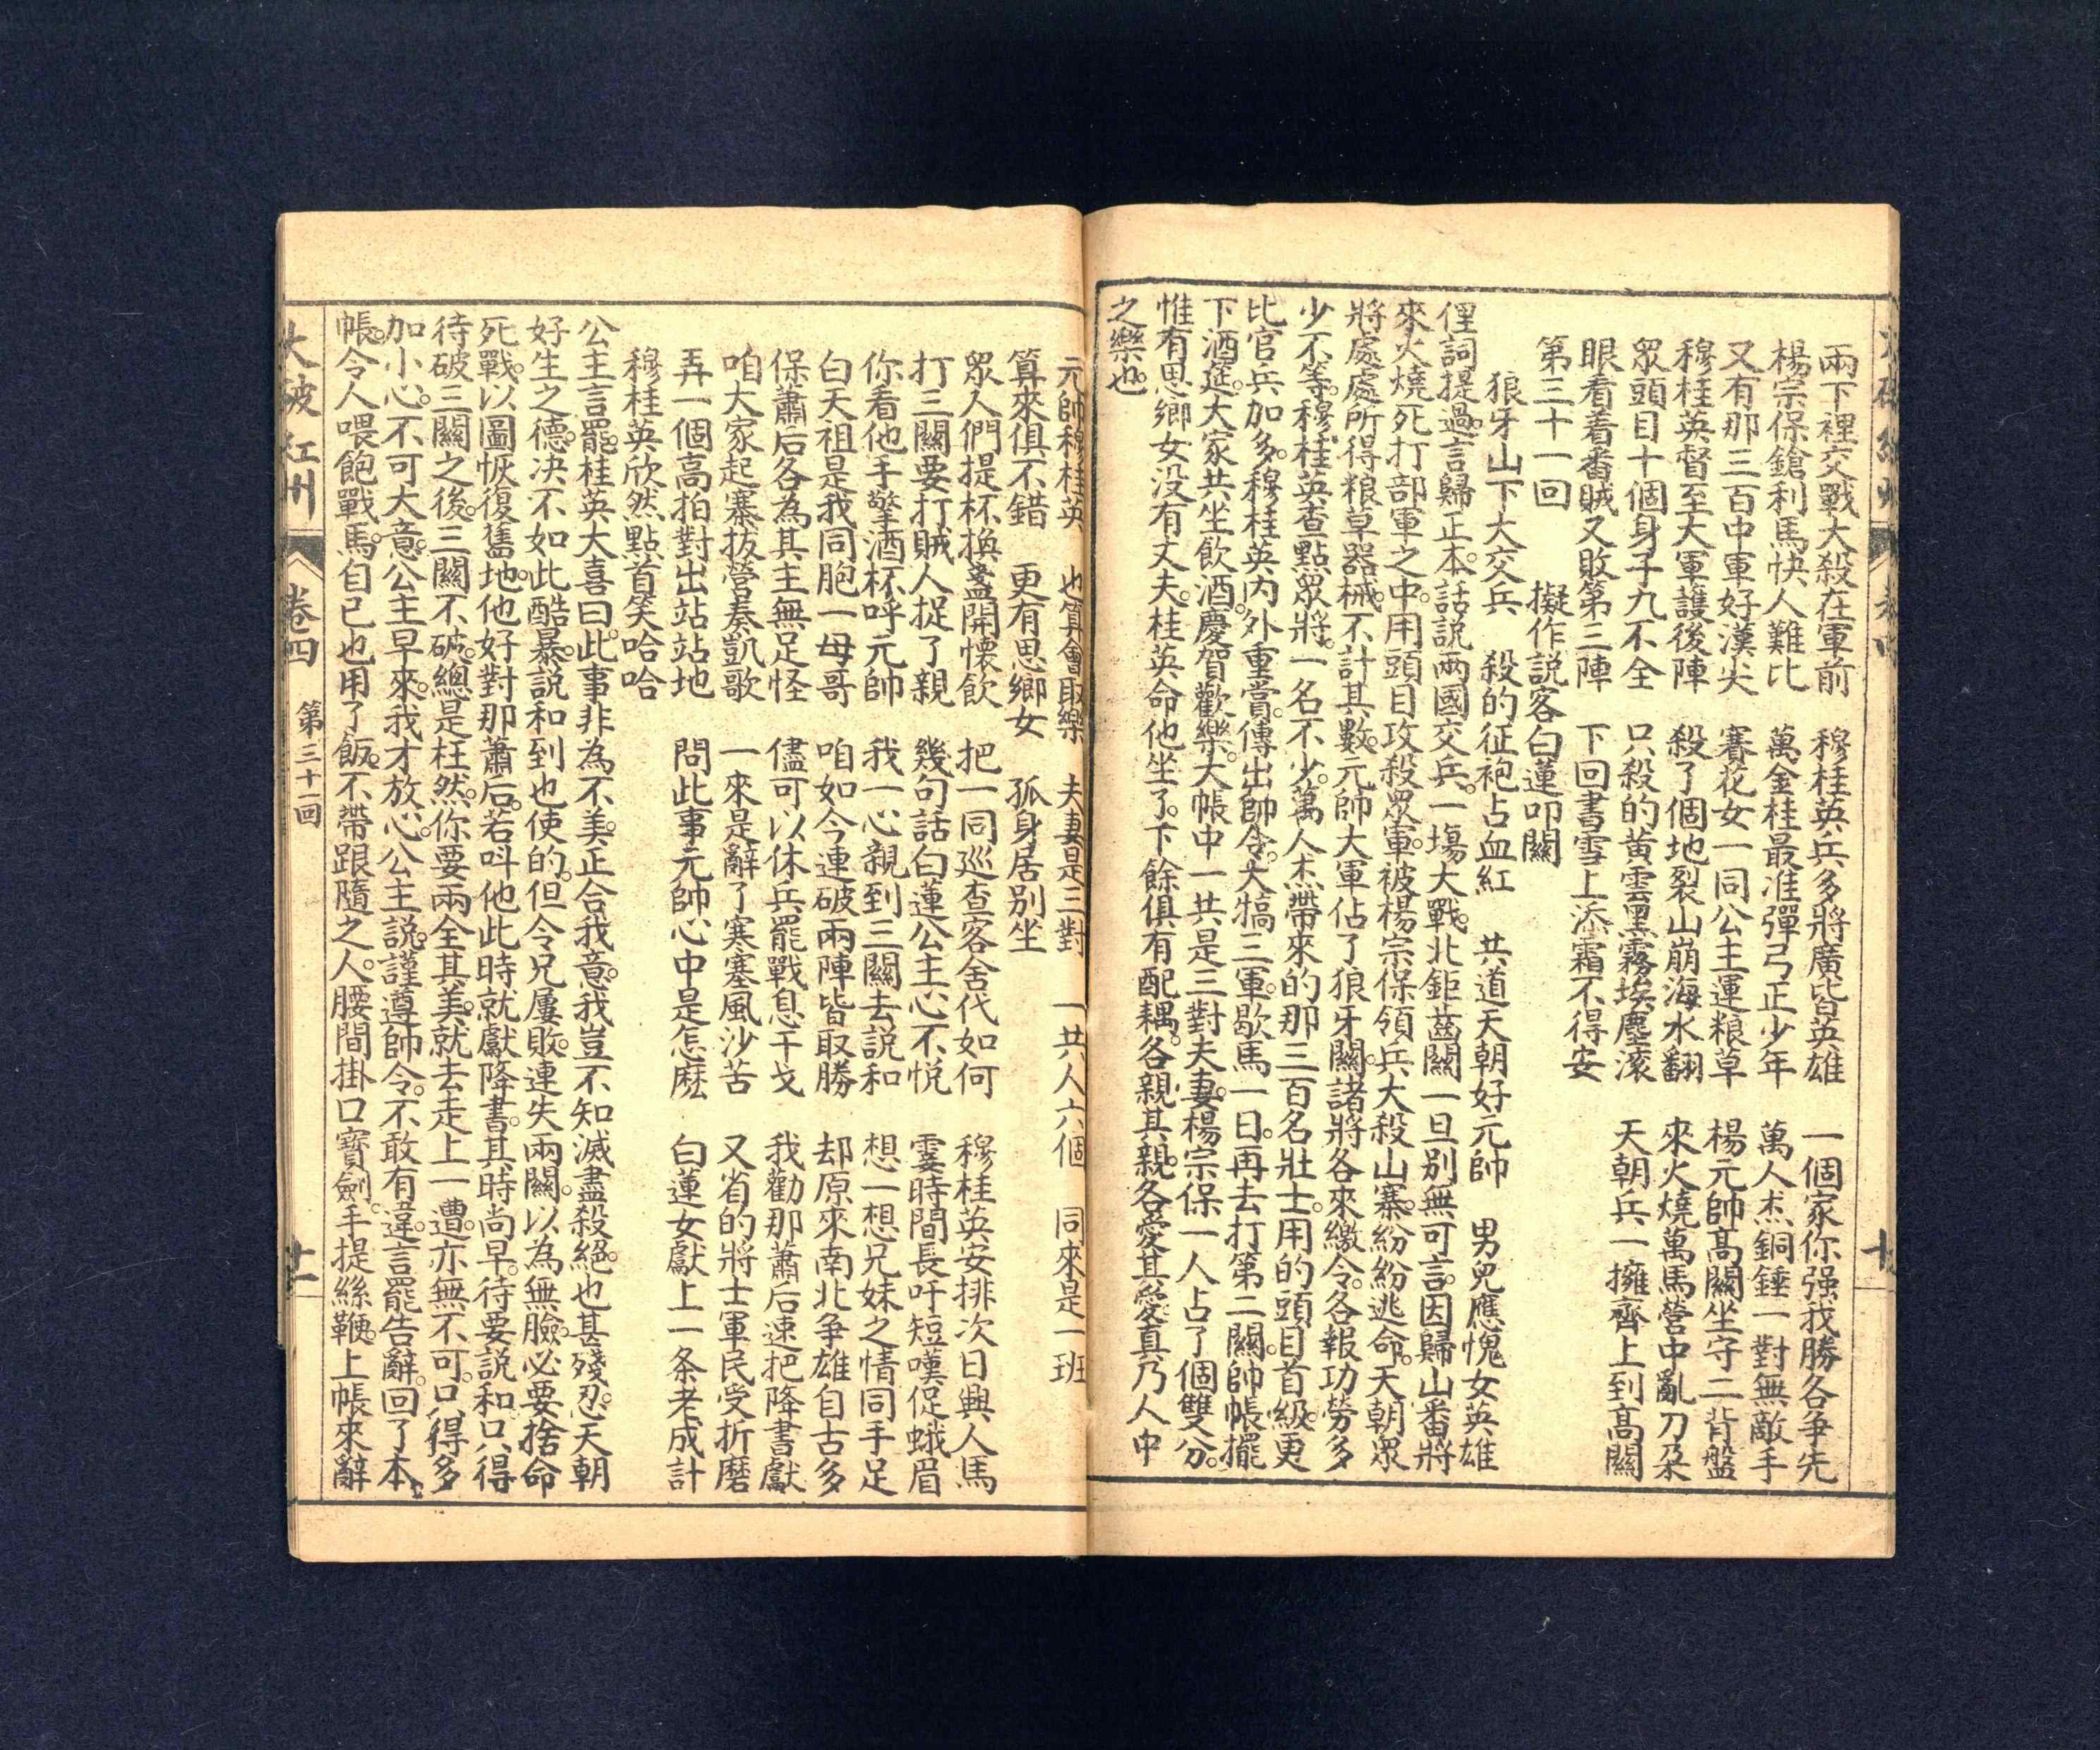 兩下裡交戰大殺在軍前 穆桂英兵多將廣皆英雄 一個家你强我勝各争先
楊宗保鎗利馬快人難比 萬金桂最准彈弓正少年 萬人杰銅錘一對無敵手
又有那三百中軍好漢尖 賽花女一同公主運粮草 楊元帥高關坐守二背盤
穆桂英督至大軍護後陣 殺了個地裂山崩海水翻 來火燒萬馬營中亂刀朶
眾頭目十個身子九不全 只殺的黄雲黑霧埃塵滚 天朝兵一擁齊上到高關
眼看着番賊又敗第三陣 下回書雪上添霜不得安
第三十一回 擬作説客白蓮叩關
狼牙山下大交兵 殺的征袍占血紅 共道天朝好元帥 男兒應愧女英雄
俚詞提過。言歸正本。話説兩國交兵。一塲大戰。北鉅齒關一旦别無可言。因歸山番將
來火燒死打部軍之中。用頭目攻殺眾軍。被楊宗保領兵大殺山寨。紛紛逃命。天朝眾
將處處所得粮草器械。不計其數。元帥大軍佔了狼牙關。諸將各來繳令。各報功勞多
少不等。穆桂英查點眾將。一名不少。萬人杰帶來的那三百名壯士。用的頭目首級。更
比官兵加多。穆桂英内外重賞。傳出帥令。大犒三軍。歇馬一日。再去打第二關。帥帳擺
下酒筵。大家共坐飲酒。慶賀歡樂。大帳中一共是三對夫妻。楊宗保一人占了個雙分。
惟有思鄉女没有丈夫。桂英命他坐了。下餘俱有配耦。各親其親。各愛其愛。真乃人中
之樂也。
元帥穆桂英 也算會取樂 夫妻是三對 一共人六個 同來是一班
算來俱不錯 更有思鄉女 孤身居别坐
眾人們提杯換盞開懷飲 把一同巡查客舍代如何 穆桂英安排次日興人馬
打三關要打賊人捉了親 幾句話白蓮公主心不悦 霎時間長吁短嘆促蛾眉
你看他手擎酒杯呼元帥 我一心親到三關去説和 想一想兄妹之情同手足
白天祖是我同胞一母哥 咱如今連破兩陣皆取勝 却原來南北争雄自古多
保蕭后各為其主無足怪 儘可以休兵罷戰息干戈 我勸那蕭后速把降書獻
咱大家起寨拔營奏凱歌 一來是辭了寒塞風沙苦 又省的將士軍民受折磨
弄一個高拍對出站站地 問此事元帥心中是怎麽 白蓮女獻上一条老成計
穆桂英欣然點首笑哈哈
公主言罷。桂英大喜曰。此事非為不美。正合我意。我豈不知滅盡殺絕。也甚殘忍。天朝
好生之德。决不如此酷暴。説和到也使的。但令兄屢敗。連失兩關。以為無臉。必要捨命
死戰。以圖恢復舊地。他好對那蕭后。若呌他此時就獻降書。其時尚早。待要説和。只得
待破三關之後。三關不破。總是枉然。你要兩全其美。就去走上一遭。亦無不可。只得多
加小心。不可大意。公主早來。我才放心。公主説。謹遵帥令。不敢有違。言罷告辭。回了本
帳。令人喂飽戰馬。自已也用了飯。不帶跟隨之人。腰間掛口寳劍。手提絲鞭。上帳來辭
大破紅州 卷四 第三十一回 廿一